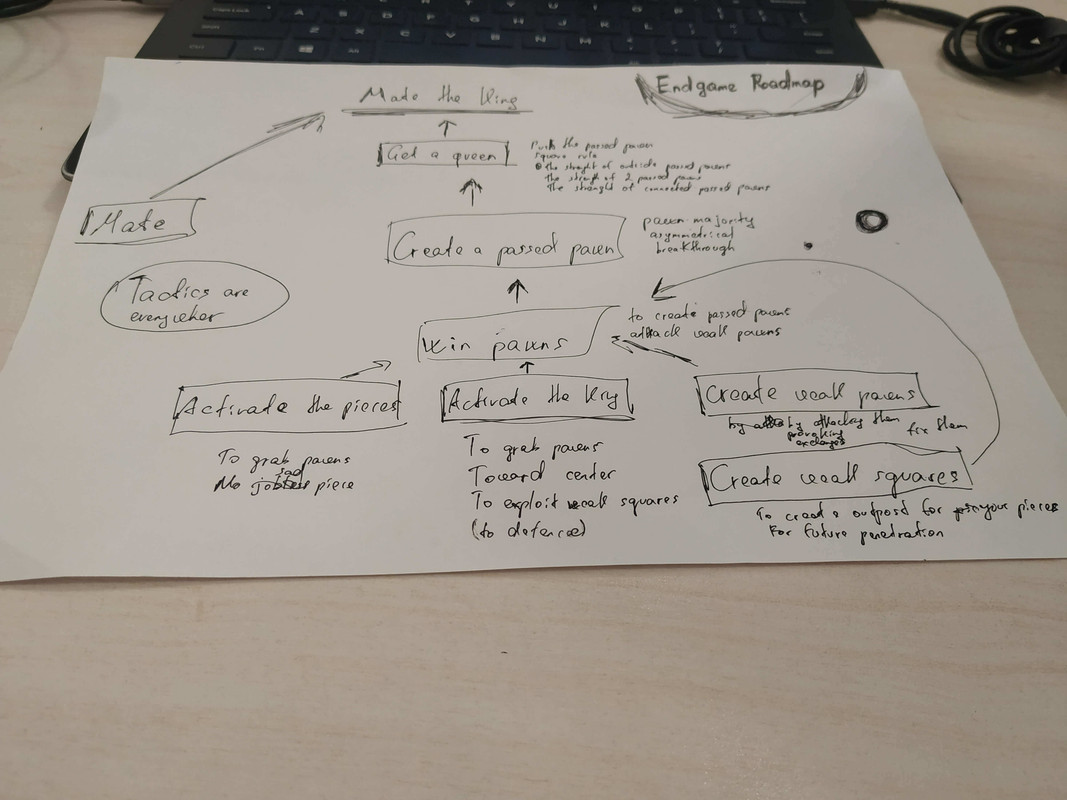 Endgame Roadmap
Mate the King
Get a queen
Push the passed pawn
square rule
the strenght of outside passed pawns
the strength of 2 passed pawns
The strenght of connected passed pawns
Mate
Create a passed pawn
pawn majority
asymmetrical
breakthrough
Tactics are
everywher
Win pawns
to create passed pawns
attack weak pawns
Activate the pieces
To grab pawns
No sad
piece
Activate the King
To grab pawns
Toward center
To exploit weak squares
(to defence)
Create weak pawns
by attacking them
fix them
provoking
exchanges
Create weak squares
To create outpost for your pieces
For future penetration